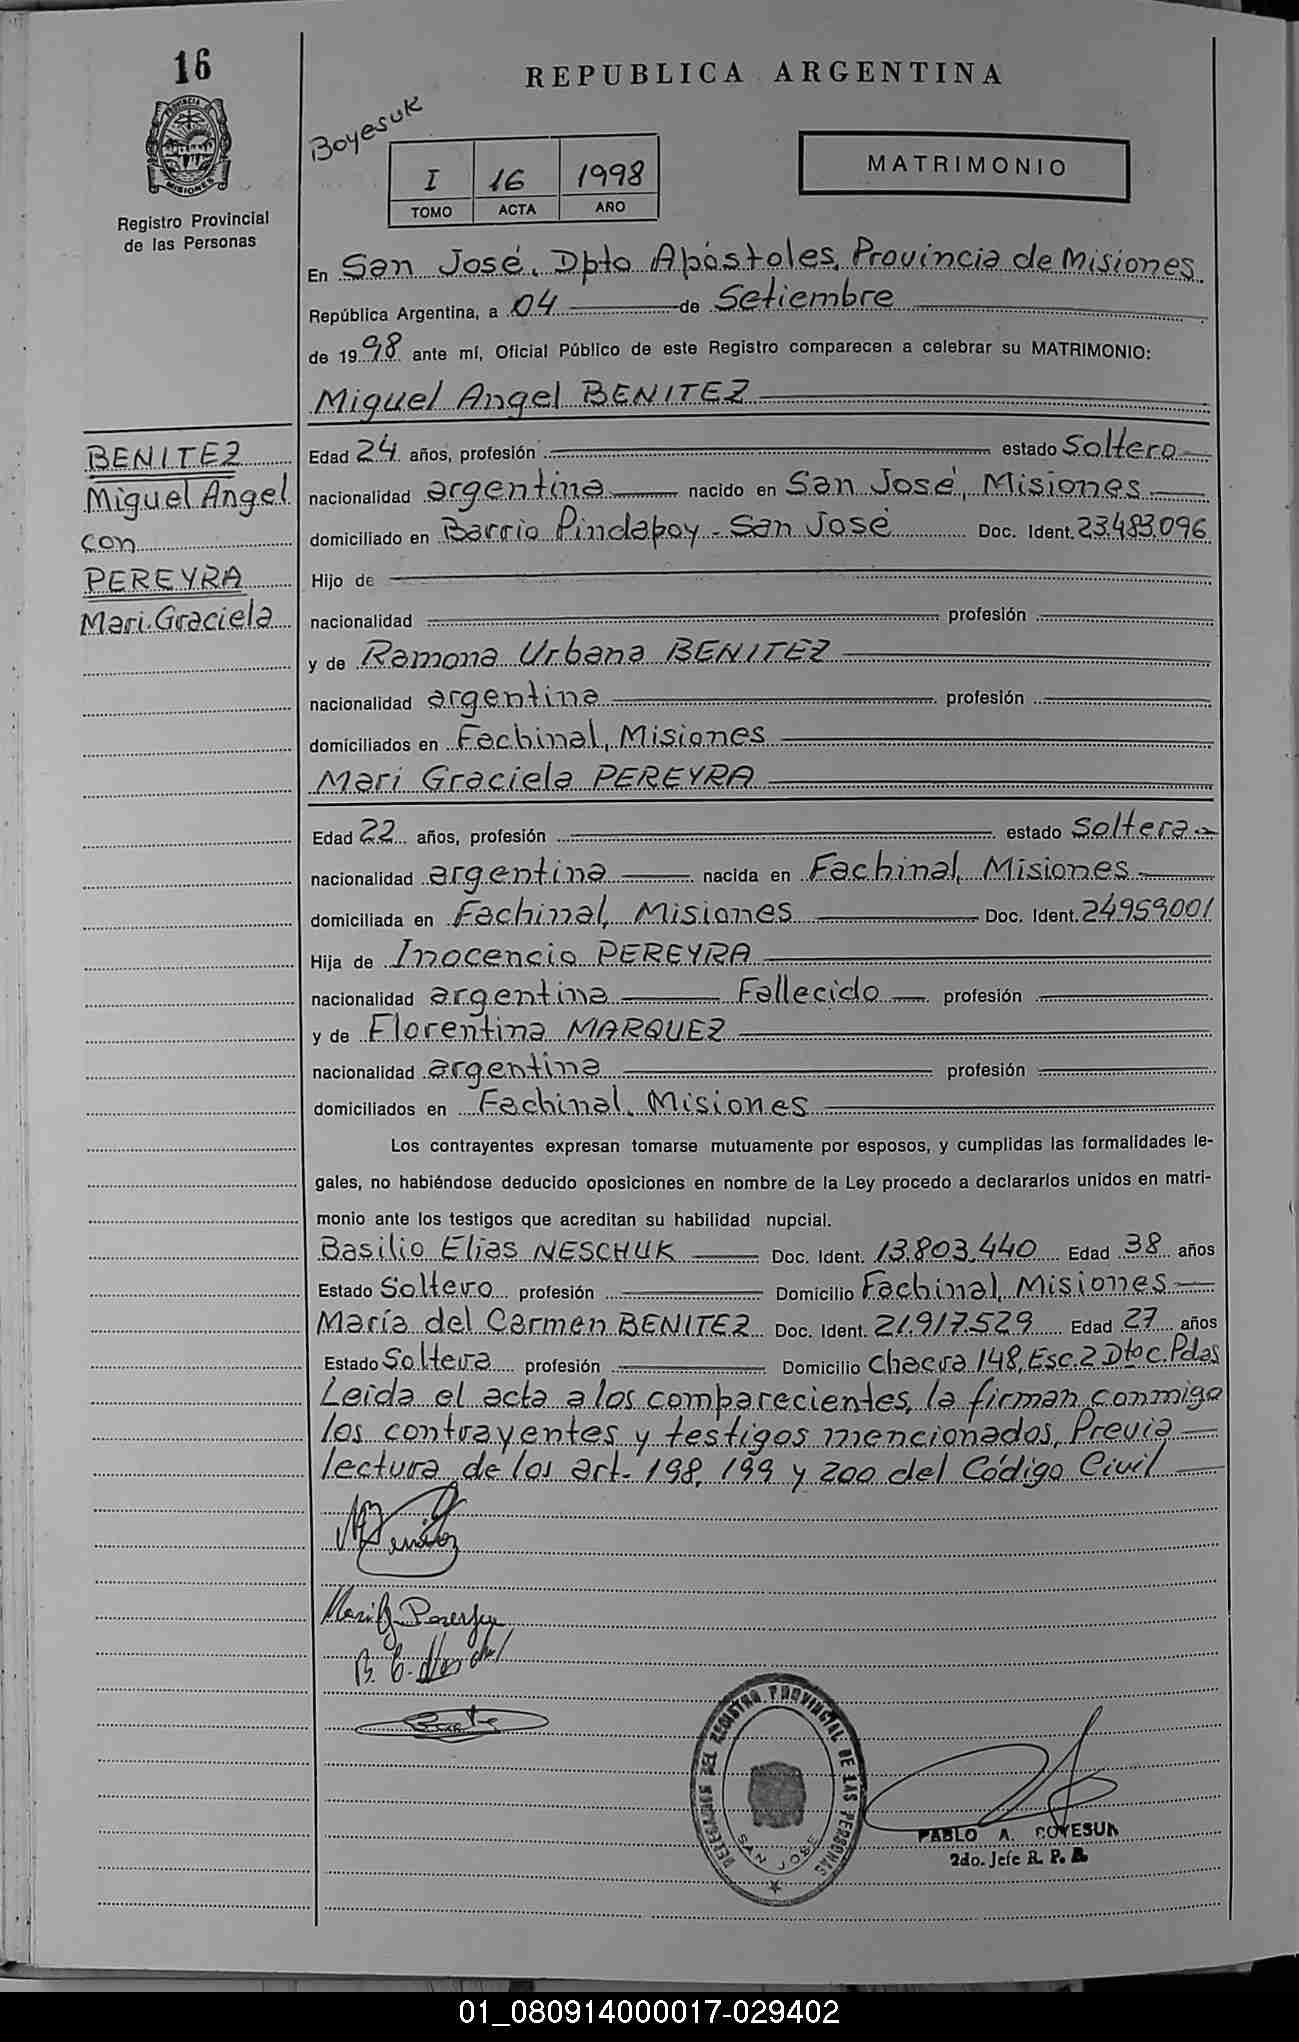 16
REPUBLICA ARGENTINA
Boyesuk
PROVINCIA DE
MISIONES
Registro Provincial
de las Personas
I 16 1998
TOMO ACTA AÑO
MATRIMONIO
En San José, Dpto Apóstoles, Provincia de Misiones
República Argentina, a 04 de Setiembre
de 1998 ante mí, Oficial Público de este Registro comparecen a celebrar su MATRIMONIO:
Miguel Angel BENITEZ
BENITEZ
Miguel Angel
con
PEREYRA
Mari Graciela
Edad 24 años, profesión estado Soltero
nacionalidad argentina nacido en San José, Misiones
domiciliado en Barrio Pindapoy - San José Doc. Ident. 23.483.096
Hijo de
nacionalidad profesión
y de Ramona Urbana BENITEZ
nacionalidad argentina profesión
domiciliados en Fachinal, Misiones
Mari Graciela PEREYRA
Edad 22 años, profesión estado Soltera
nacionalidad argentina nacida en Fachinal, Misiones
domiciliada en Fachinal, Misiones Doc. Ident. 24959001
Hija de Inocencio PEREYRA
nacionalidad argentina Fallecido profesión
y de Florentina MARQUEZ
nacionalidad argentina profesión
domiciliados en Fachinal, Misiones
Los contrayentes expresan tomarse mutuamente por esposos, y cumplidas las formalidades le-
gales, no habiéndose deducido oposiciones en nombre de la Ley procedo a declararlos unidos en matri-
monio ante los testigos que acreditan su habilidad nupcial.
Basilio Elias NESCHUK Doc. Ident. 13.803.440 Edad 38 años
Estado Soltero profesión Domicilio Fachinal, Misiones
María del Carmen BENITEZ Doc. Ident. 21.917.529 Edad 27 años
Estado Soltera profesión Domicilio Chacra 148, Esc. 2 Dto C. Pdas
Leida el acta a los comparecientes, la firman conmigo
los contrayentes y testigos mencionados, Previa
lectura de los art. 198, 199 y 200 del Código Civil
DELEGACION DEL REGISTRO PROVINCIAL DE LAS PERSONAS
SAN JOSE
PABLO A. BOYESUK
2do. Jefe R. P.
01_080914000017-029402